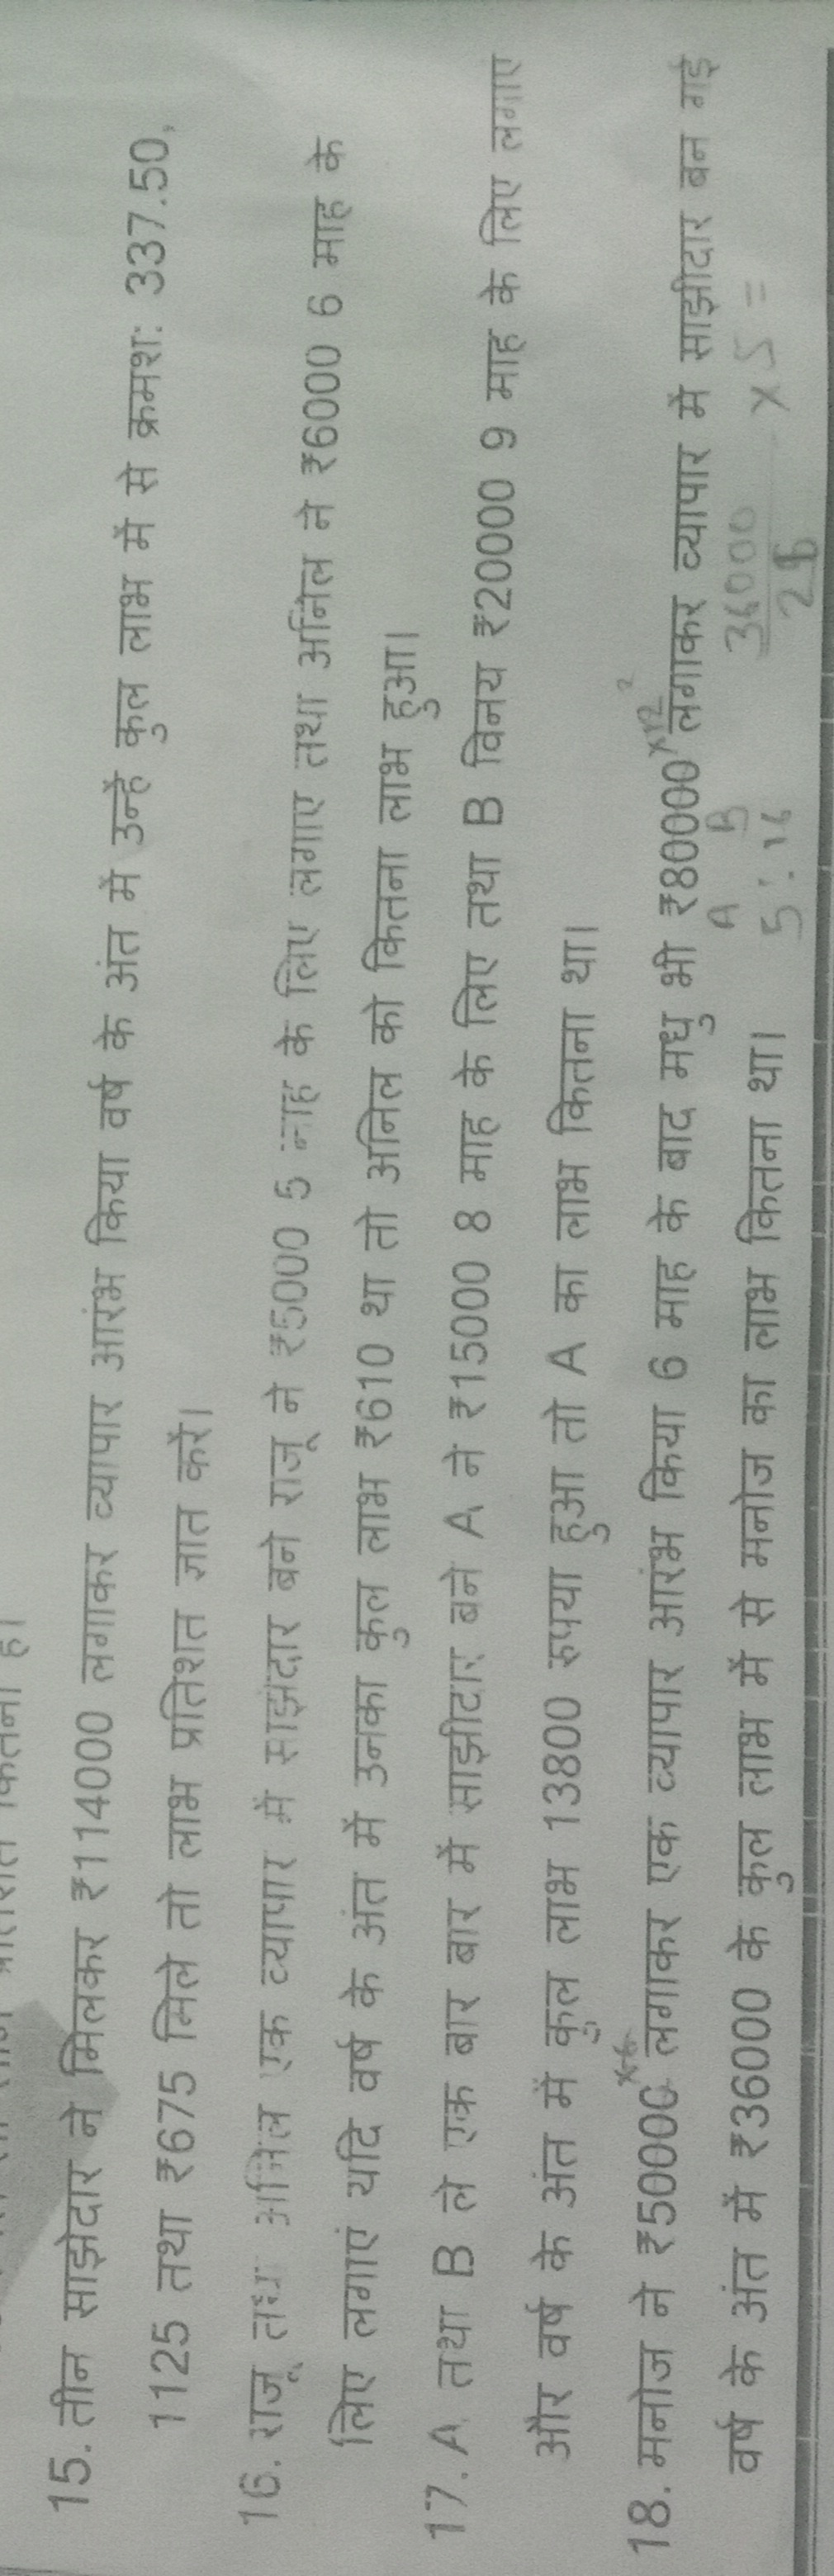 कितना है।
15. तीन साझेदार ने मिलकर ₹114000 लगाकर व्यापार आरंभ किया वर्ष के अंत में उन्हें कुल लाभ में से क्रमशः 337.50,
1125 तथा ₹675 मिले तो लाभ प्रतिशत ज्ञात करें।
16. राजू तथा अनिल एक व्यापार में साझेदार बने राजू ने ₹5000 5 माह के लिए लगाए तथा अनिल ने ₹6000 6 माह के
लिए लगाएं यदि वर्ष के अंत में उनका कुल लाभ ₹610 था तो अनिल को कितना लाभ हुआ।
17. A तथा B ले एक बार बार में साझीदार बने A ने ₹15000 8 माह के लिए तथा B विनय ₹20000 9 माह के लिए लगाए
और वर्ष के अंत में कुल लाभ 13800 रुपया हुआ तो A का लाभ कितना था।
18. मनोज ने ₹50000 लगाकर एक व्यापार आरंभ किया 6 माह के बाद मधु भी ₹80000 लगाकर व्यापार में साझीदार बन गई
x6 x12 2
वर्ष के अंत में ₹36000 के कुल लाभ में से मनोज का लाभ कितना था।
A B
5:16
36000
26
x 5 =